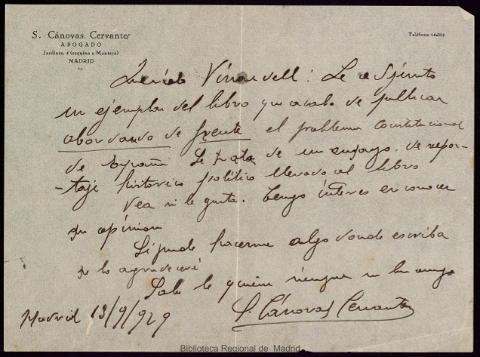 S. Cánovas Cervantes
ABOGADO
MADRID
Teléfono
Querido Vinardell: Le adjunto
un ejemplar del libro que acabo de publicar
abordando de frente el problema constitucional
de España Se trata de un ensayo de repor-
-taje histórico político llevado al libro
Vea si le gusta. Tengo interes en conocer
su opinion
Si puede hacerme algo donde escriba
se lo agradeceré
Sabe le quiere siempre su buen amigo
S. Cánovas Cervantes
Madrid 13/9/929
Biblioteca Regional de Madrid